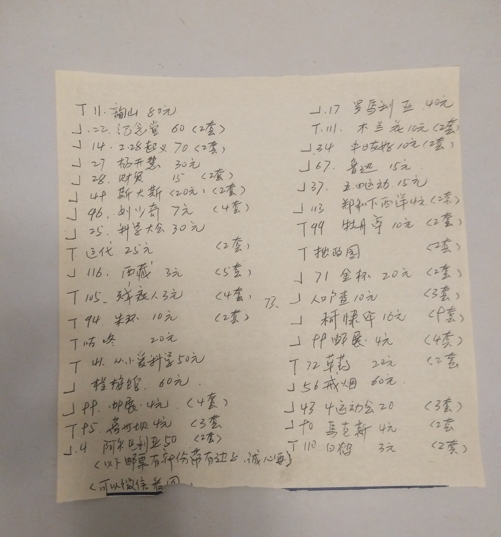 T 11. 韶山 80元
J.22. 纪念堂 60 (2套)
J 14. 2.28起义 70 (2套)
J 27 杨开慧 30元
J 28. 财贸 15 (2套)
J 44 斯大林 (20元, (2套)
J 96. 刘少奇 7元 (4套)
J 25. 科学大会 30元
T 近代 25元 (2套)
J 116. 西藏 3元 (5套)
T 105. 残疾人3元 (4套,
T 94 朱环 10元 (2套)
T 咕咚 20元
T 41. 从小爱科学50元
60元.
J 99. 邮展 4元 (4套)
T 85 4元 (3套
J.4 阿尔巴利亚50 (2套)
(以下邮票有部份带有边上, 诚心
(可以微信看图)
J.17 罗马利亚 40元
T.111. 木兰花 10元 (2套)
J 34 中日友好 10元 (2套)
J 67. 鲁迅 15元.
J 37. 五四运动 15元
J 113 郑和下西洋4元 (2套)
T 99 牡丹亭 10元 (2套)
T 拙政园 (2套)
J 71 金杯 20元 (2套)
73. J 人口普查10元 (3套)
J 柯棣华 16元 (9套)
J 99 邮展 4元 (4套)
T 72 草药 22元 (2套
J 56 戒烟 60元.
J 43 4运动会 20 (3套)
J 90 马克斯 4元 (2套
T 110 白鹤 3元 (2套)